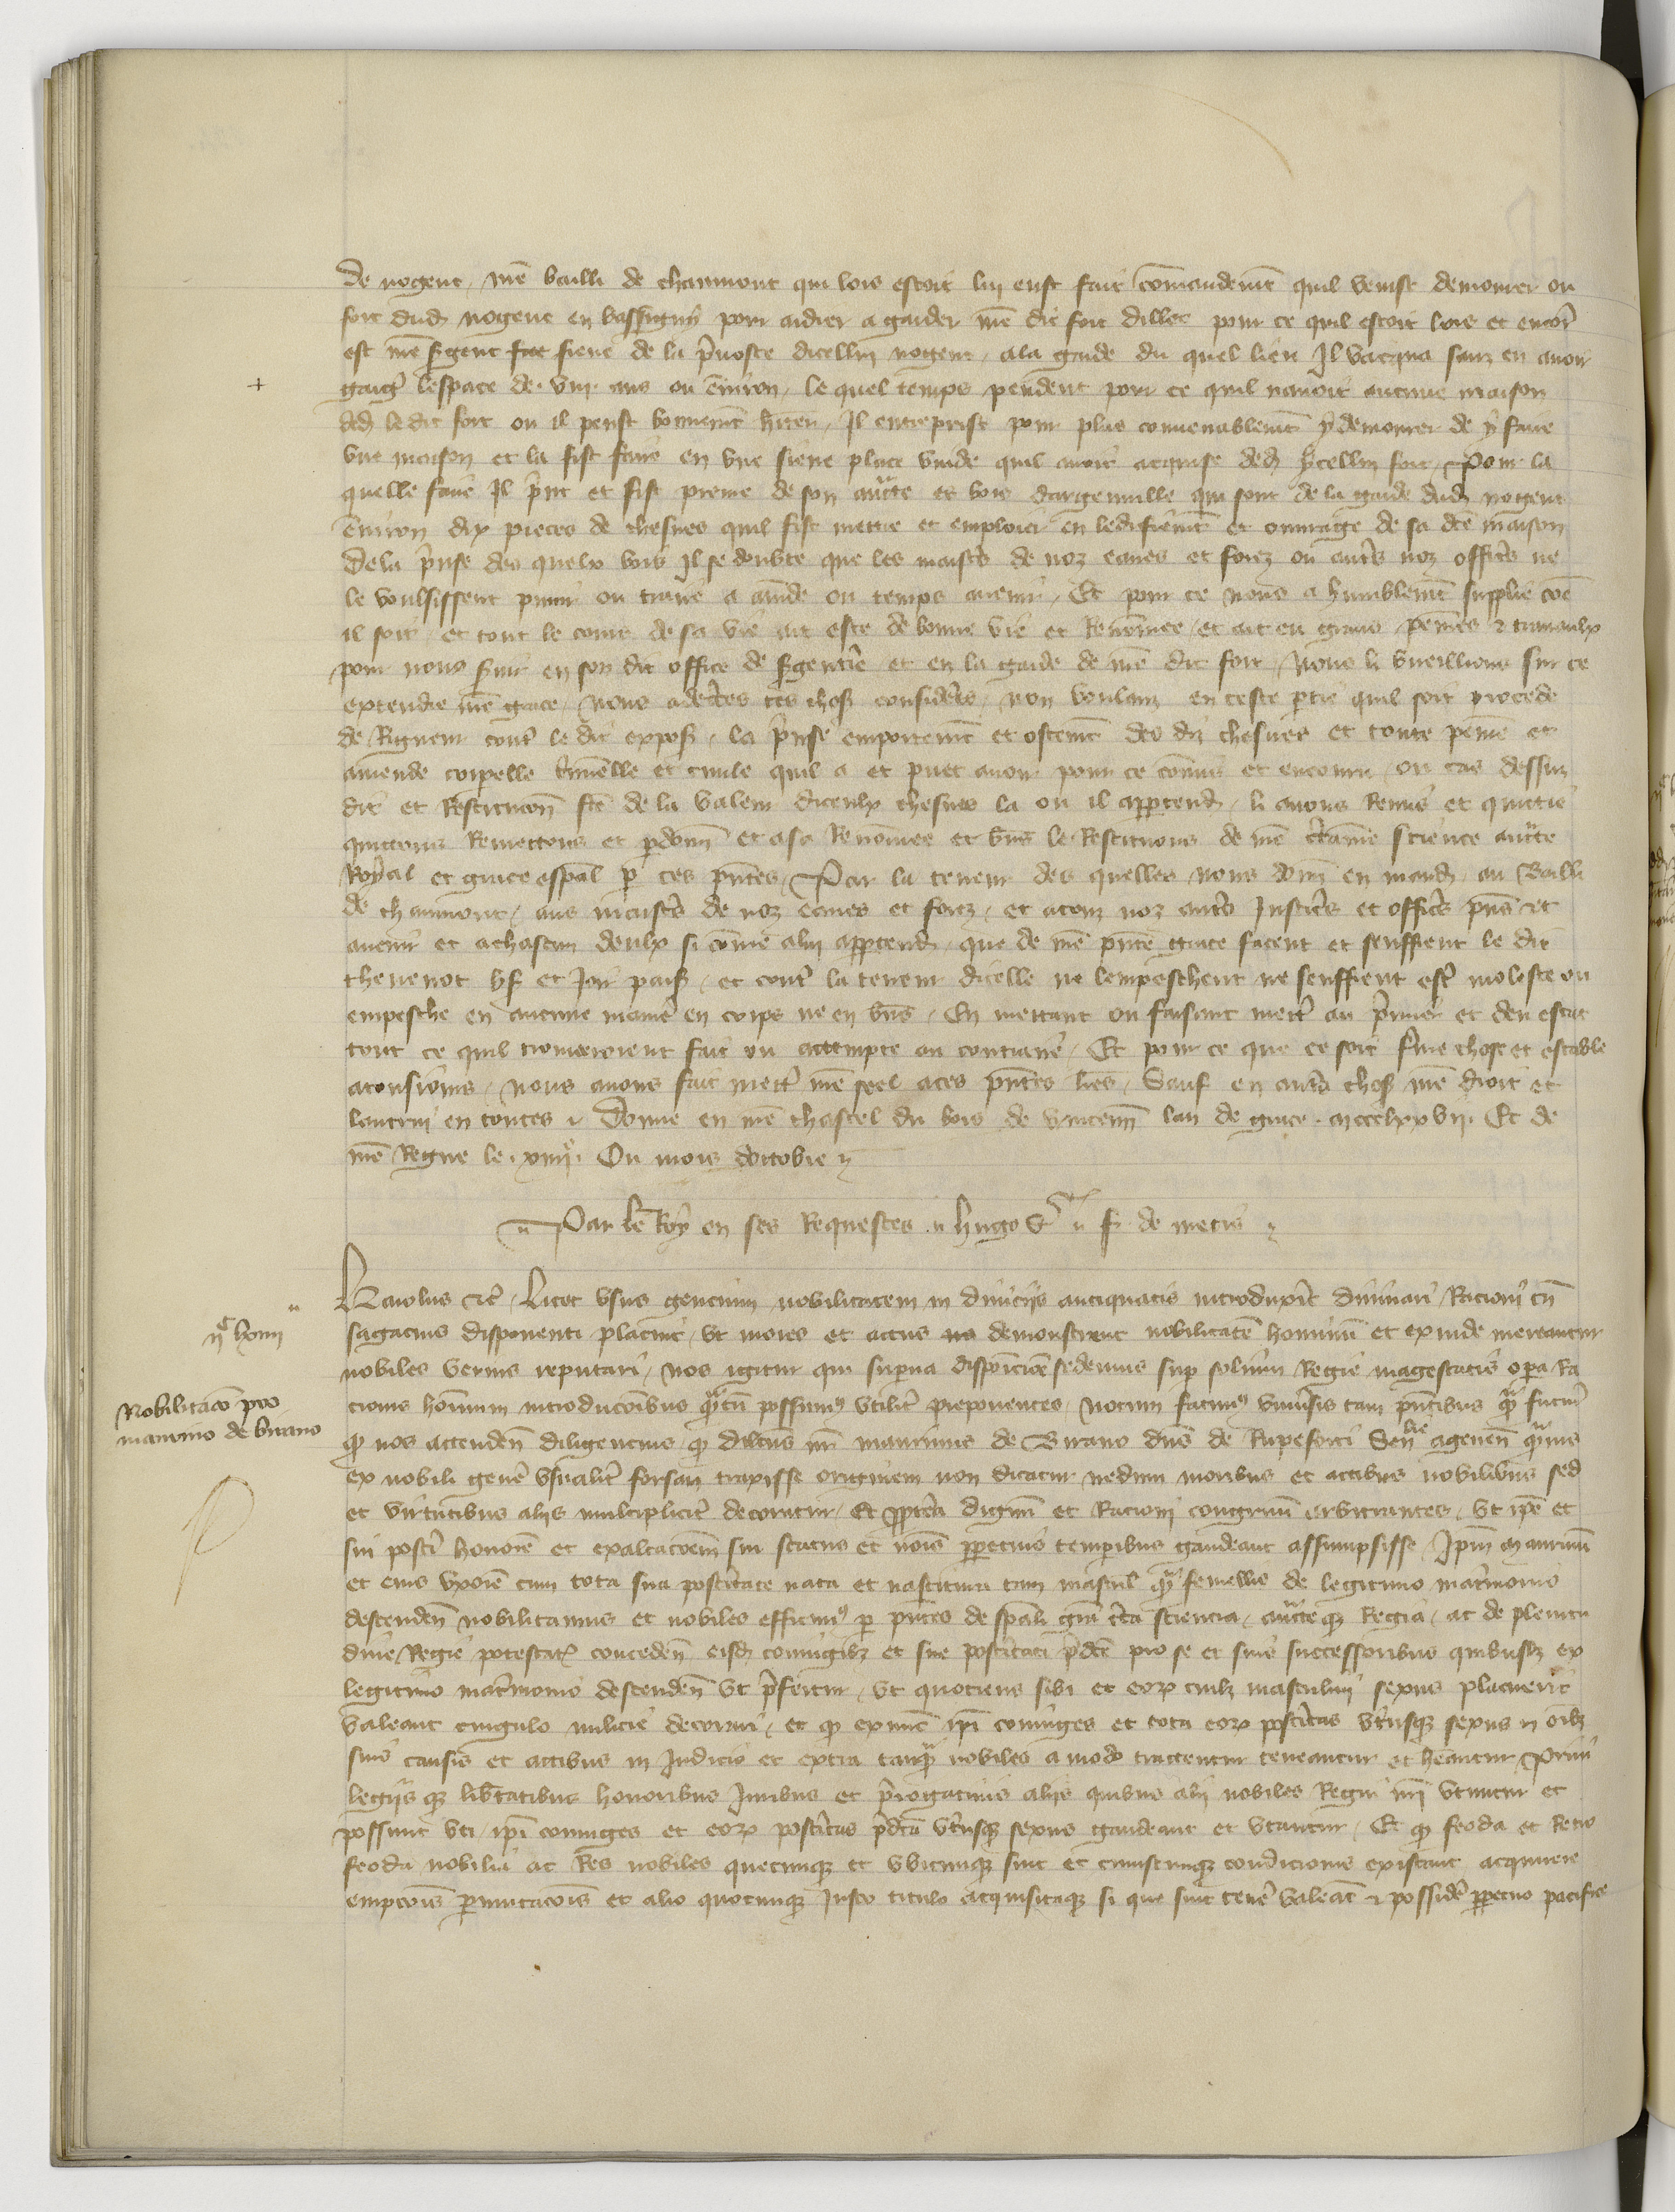 de nogent, nre bailli de chaumont qui lors estoit lui eust fait comandemt quil venist demourer ou
fort dud nogent en bassigny pour aidier a garder nre dit fort dillec pour ce quil estoit lors et encor
est nre sgent fieue de la pruoste dicellui nogent, a la garde du quel lieu Il vacqua sanz en auoir
gaig lespace de .viii. ans ou enuiron, le quel temps pendent pour ce quil nauoit aucune maison
ded le dit fort ou il peust bonnemt hiter, Il entreprist pour plus conuenablemt y demourer de y faire
vne maison et la fist faire en vne siene place vuide quil auoit acquise ded ycellui fort, Pour la
quelle faire Il prit et fist prenre de son aucte es bois dargenuille qui sont de la garde dud nogent
enuiron dix pieces de chesnes quil fist mettre et emploier en ledifiemt et ouurage de sa dce maison
De la prise des quelx bois Il se doubte que les maists de noz eaues et forez ou auts noz offics ne
le voulsissent punir ou traire a amde ou temps auenir, Et pour ce nous a humblemt supplie coe
il soit et tout le cours de sa vie ait este de bonne vie et Renomee, et ait eu grans peines & trauaulx
pour nous suir en son dit office de sgentie et en la garde de nre dit fort, Nous li vueillions sur ce
extendre nre grace, Nous adctes ces chos considers, non voulanz en ceste ptie quil soit procede
de Rigueur contr le dit expos, la prise emportemt et ostemt des diz chesnes et toute peine et
amende corpelle cminelle et ciuile quil a et puet auoir pour ce comis et encouru ou cas dessuz
dit et Restitucon fce de la valeur diceulx chesnes la ou il apptend, li auons Remis et quittie
quittons Remettons et pdonn et a sa Renomee et bns le Restituons de nre ctaine science aucte
Royal et grace espal p ces pntes, Par la teneur des quelles nous donn en mand au Bailli
de chaumont, aus maists de noz eaues et forez, et a touz noz auts Justics et offics pns et
auenir et a chascun deulx si comme a lui apptend, que de nre pnte grace facent et seuffrent le dit
theuenot vs et Joir paisi, et contr la teneur dicelle ne lempeschent ne seuffrent estr moleste ou
empesche en aucune manie en corps ne en bns, En mettant ou faisant mettr au prmier et deu estat
tout ce quil trouueroient fait ou attempte au contraire, Et pour ce que ce soit ferme chose et estable
a tousiours, Nous auons fait mettr nre seel a ces pntes lres, Sauf en auts chos nre droit et
lautrui en toutes, Donne en nre chastel du bois de vincenn lan de grace .mccclxxvii. Et de
nre Regne le .xiiii. Ou mois doctobre
Par le Roy en ses Requestes. Hugo Sr. f. de metis
Karolus etc, Licet vsus gencium nobilitatem in diuiciis antiquatis introduxit diuinari Racioni cu
sagacius disponenti placuit, vt mores et actus demonstrent nobilitate hominu et exinde mereantur
nobiles verius reputari, Nos igitur qui supna disposicioe sedemus sup solium Regie magestatis opa Ra
cionis hominum introduccoibus qtu possumus vtilit preponentes, Notum facimus vniusis tam pntibus q futur
q nos attenden diligencius q dilcus nr Maurinus de Birano dns de Rupeforti Senlie agenen quius
ex nobili gene vsualit forsan traxisse originem non dicatur nedum moribus et actibus nobilibus sed
et virtutibus aliis multiplicit decoratur, Et ppta dignu et Racioni congruu arbitrantes, vt ipe et
sui posti honore et exaltacoem sui status et nois ppetuis temporibus gaudeant assumpsisse, Ipm Maurinu
et eius vxore cum tota sua posterate nata et nascitura tam mascul q femellis de legitimo matrimonio
descenden nobilitamus et nobiles efficimus p pntes de spali gra cta sciencia, aucteq Regia, ac de plenitu
dine Regie potestatis conceden eisd coniugib et sue postitati pdce pro se et suis successoribus quibusz ex
legitimo matrimonio descenden vt prefertur, vt quociens sibi et eorum cuilz masculini sexus placuerit
valeant cingulo milicie decorari, et q exnunc ipi coniuges et tota eorum postitas vtriusq sexus in oibz
suis causis et actibus in Judicio et extra tanq nobiles a modo tractentur teneantur et heantur, Priui
legiisq libtatibus honoribus Juribus et prerogatiuis aliis quibus alii nobiles Regni nri vtuntur et
possunt vti, ipi coniuges et eorum postitas pdcta vtriusq sexus gaudeant et vtantur, Et q feoda et Retro
feoda nobiliu ac Res nobiles quecunq et vbicunq sint et cuiuscunq condicionis existant acquirere
empcois pmutacois et alio quocunq Justo titulo acquisitaq si que sint tene valeat & posside ppetuo pacifice
iic lxxiii
Nobilitaco pro
maurino de birano